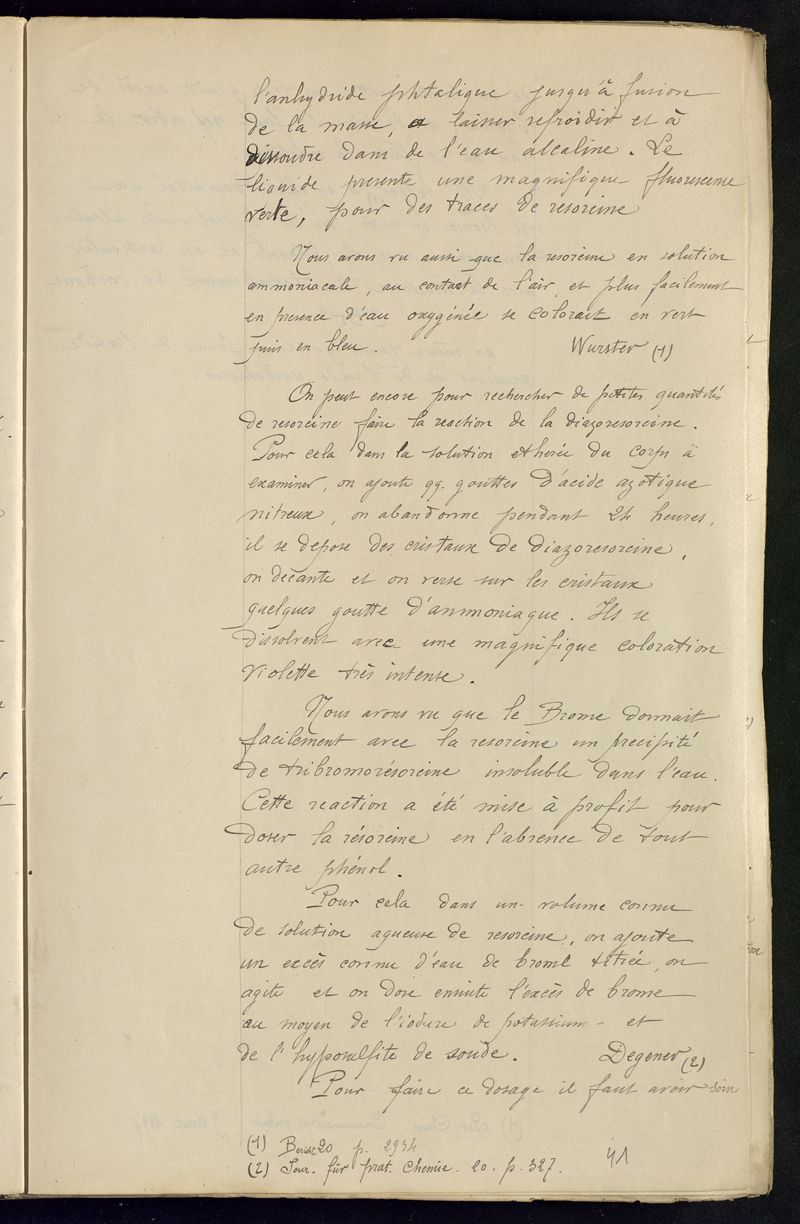 l'anhydride phtalique jusqu'à fusion
de la masse, a laisser refroidir et à
dissoudre dans de l'eau alcaline. Le
liquide presente une magnifique fluorescence
verte, pour des traces de resorcine
Nous avons vu aussi que la resorcine en solution
ammoniacale, au contact de l'air et plus facilement
en presence d'eau oxygénée se colorait en vert
puis en bleu. Wurster (1)
On peut encore pour rechercher de petites quantités
de resorcine faire la reaction de la diazoresorcine.
Pour cela dans la solution etherée du corps à
examiner, on ajoute qq. gouttes d'acide azotique
nitreux, on abandonne pendant 24 heures,
il se depose des cristaux de diazoresorcine,
on décante et on verse sur les cristaux
quelques goutte d'ammoniaque. Ils se
dissolvent avec une magnifique coloration
violette très intense.
Nous avons vu que le Brome donnait
facilement avec la resorcine un precipité
de tribromorésorcine insoluble dans l'eau.
Cette reaction a été mise à profit pour
doser la résorcine en l'absence de tout
autre phénol.
Pour cela dans un volume connu
de solution aqueuse de resorcine, on ajoute
un excès connu d'eau de brome titrée, on
agite et on dose ensuite l'excès de brome
au moyen de l'iodure de potassium et
de l'hyposulfite de soude. Degener (2)
Pour faire ce dosage il faut avoir soin
(1) 20 p. 2934
(2) Jour. für prat. Chemie. 20. p. 327.
41